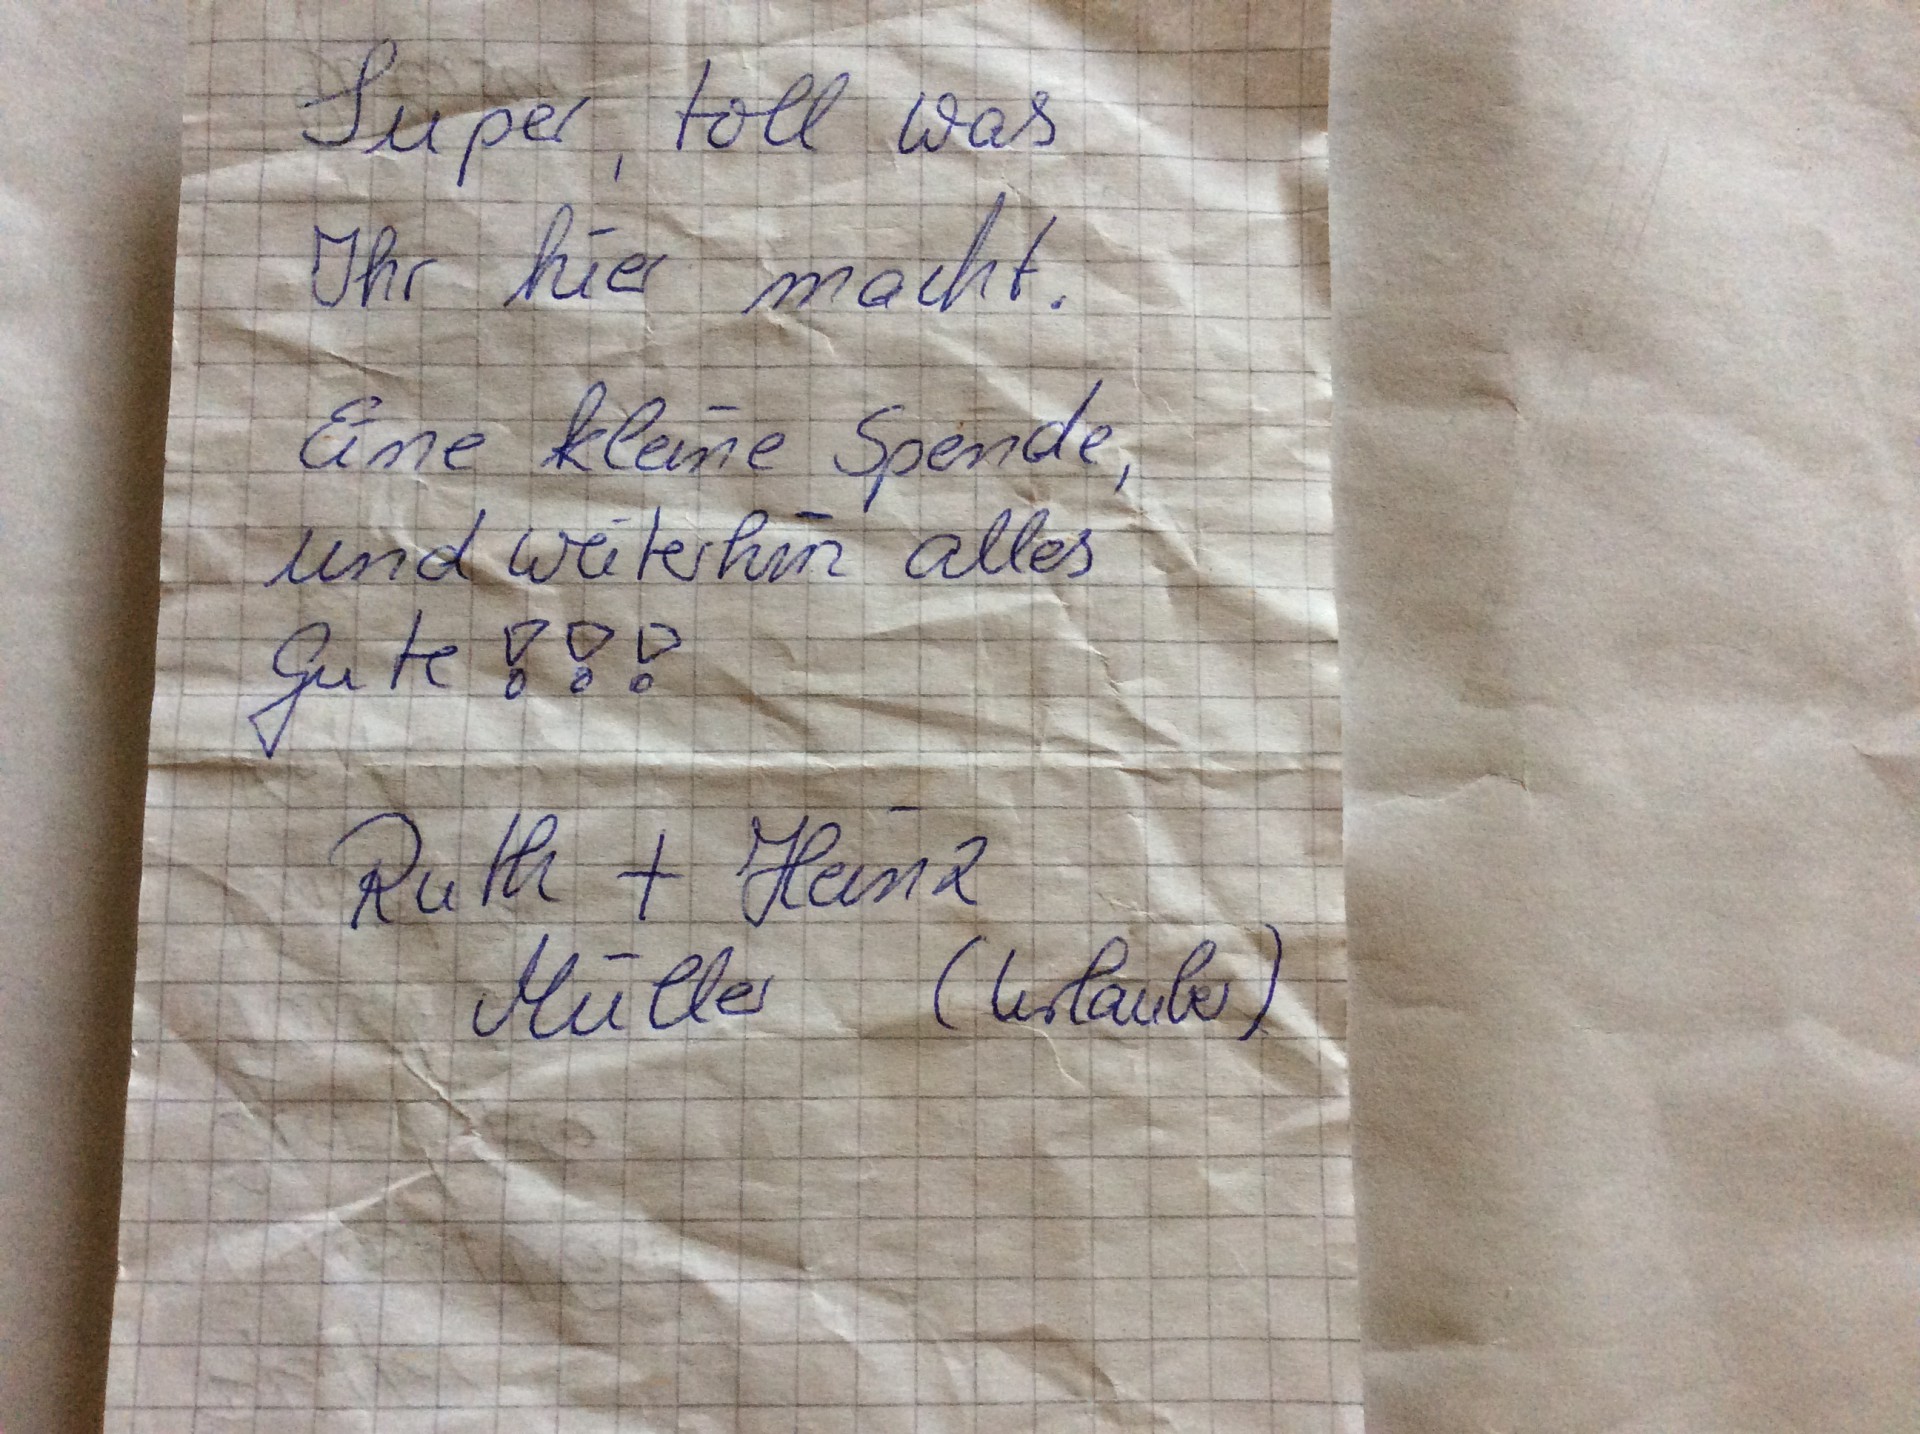 Super, toll was
Ihr hier macht.
Eine kleine Spende,
und weiterhin alles
Gute !!!
Ruth + Heinz
Müller (Urlauber)